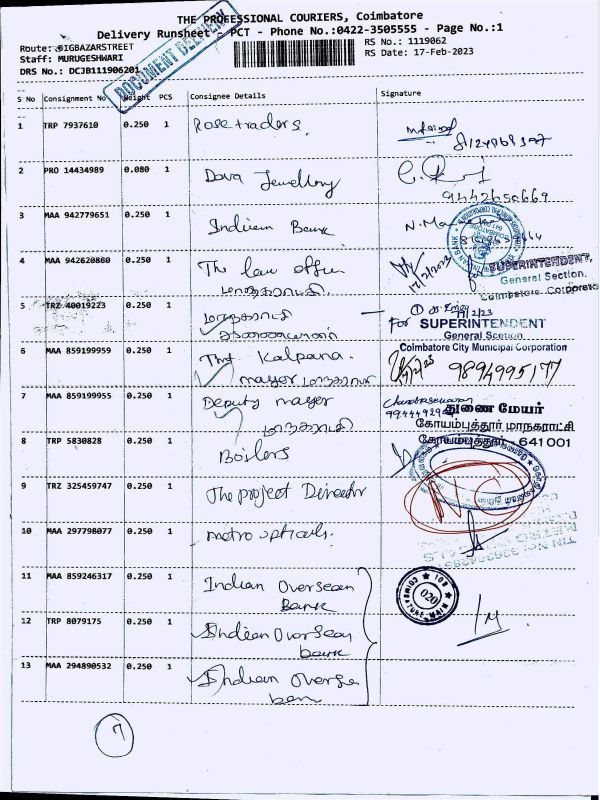 THE PROFESSIONAL COURIERS, Coimbatore
Delivery Runsheet - PCT - Phone No.:0422-3505555 - Page No.:1
Route: BIGBAZARSTREET
RS No.: 1119062
Staff: MURUGESHWARI
RS Date: 17-Feb-2023
DRS No.: DCJB111906201
DOCUMENT DELIVERY
S No Consignment No Weight PCS Consignee Details Signature
1 TRP 7937610 0.250 1 Rose traders.
2 PRO 14434989 0.080 1 Dava Jewellery
9442650669
3 MAA 942779651 0.250 1 Indian Bank
4 MAA 942620860 0.250 1 The law officer
மாநகராட்சி
17/2/2023
SUPERINTENDENT,
General Section,
Coimbatore Corporation
5 TRZ 40019223 0.250 1 மாநகராட்சி
for SUPERINTENDENT
General Section
Coimbatore City Municipal Corporation
6 MAA 859199959 0.250 1 Tmt Kalpana.
mayor மாநகராட்சி
9894995177
7 MAA 859199955 0.250 1 Deputy mayor
மாநகராட்சி
Chandrasekaran
துணை மேயர்
கோயம்புத்தூர் மாநகராட்சி
கோயம்புத்தூர் - 641 001
8 TRP 5830828 0.250 1 Boilers
9 TRZ 325459747 0.250 1 The project Director
NC
10 MAA 297798077 0.250 1 metro opticals.
11 MAA 859246317 0.250 1 Indian Overseas
Bank
IOB
020
COIMBATORE MAIN
12 TRP 8079175 0.250 1 Indian Overseas
bank
13 MAA 294890532 0.250 1 Indian Overse
ban
7